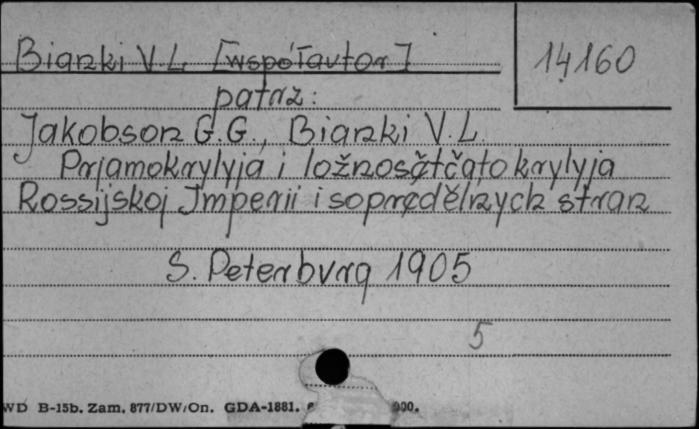 Bianki V.L [współautor]
14160
patrz:
Jakobson G.G., Bianki V.L.
Prjamokrylyja i ložnosětčato krylyja
Rossijskoj Imperii i soprědělnych stran
S. Peterburg 1905
5
WD B-15b. Zam. 877/DW/On. GDA-1881. 000.